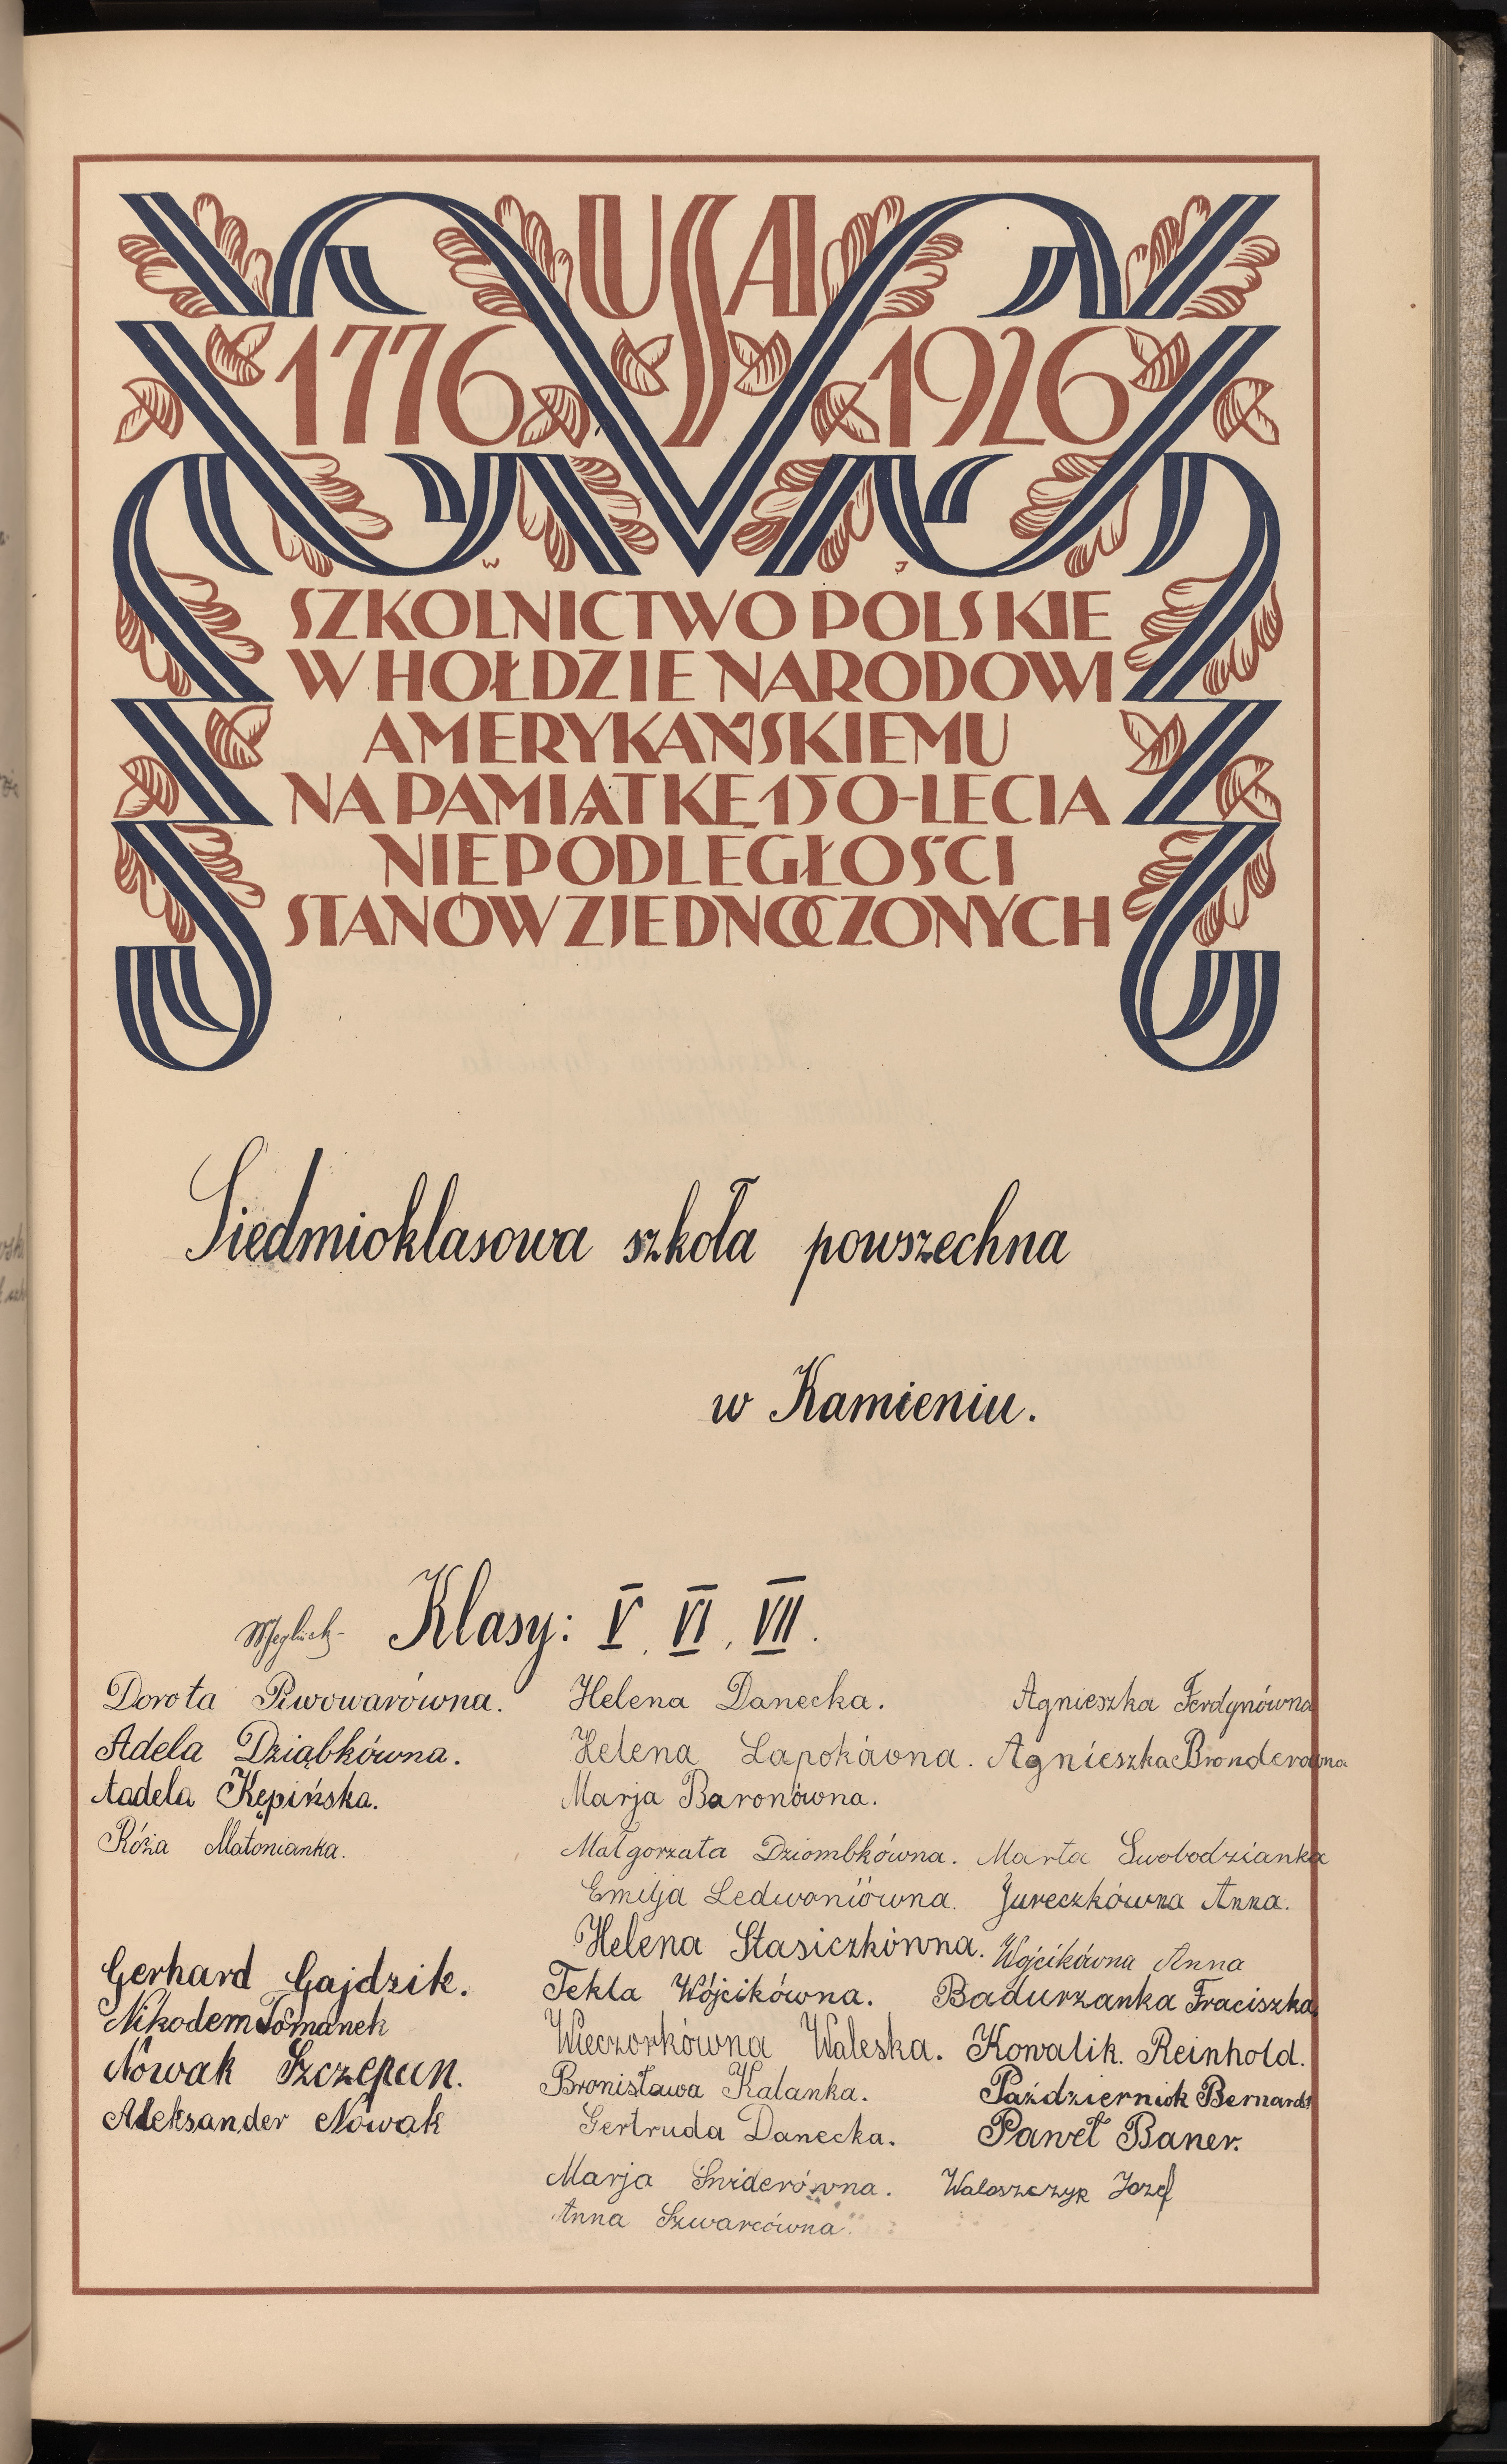 USA
1776 1926
W J
SZKOLNICTWO POLSKIE
W HOŁDZIE NARODOWI
AMERYKAŃSKIEMU
NA PAMIĄTKĘ 150-LECIA
NIEPODLEGŁOŚCI
STANÓW ZJEDNOCZONYCH
Siedmioklasowa szkoła powszechna
w Kamieniu.
Klasy: V, VI, VII.
Dorota Piwowarówna.
Adela Dziąbkówna.
Aadela Kępińska.
Róża Matonianka.
Gerhard Gajdzik.
Nikodem Tomanek
Nowak Szczepan.
Aleksander Nowak
Helena Danecka.
Helena Lapokówna.
Marja Baronówna.
Małgorzata Dziombkówna.
Emilja Ledwoniówna.
Helena Stasiczkówna.
Tekla Wójcikówna.
Wieczorkówna Waleska.
Bronisława Kalanka.
Gertruda Danecka.
Marja Sniderówna.
Anna Szwarcówna.
Agnieszka Ferdynówna
Agnieszka Bronderówna
Marta Swobodzianka
Jureczkówna Anna.
Wojcikówna Anna
Badurzanka Fraciszka
Kowalik. Reinhold.
Październiok Bernard
Paweł Baner.
Waloszczyk Jozef